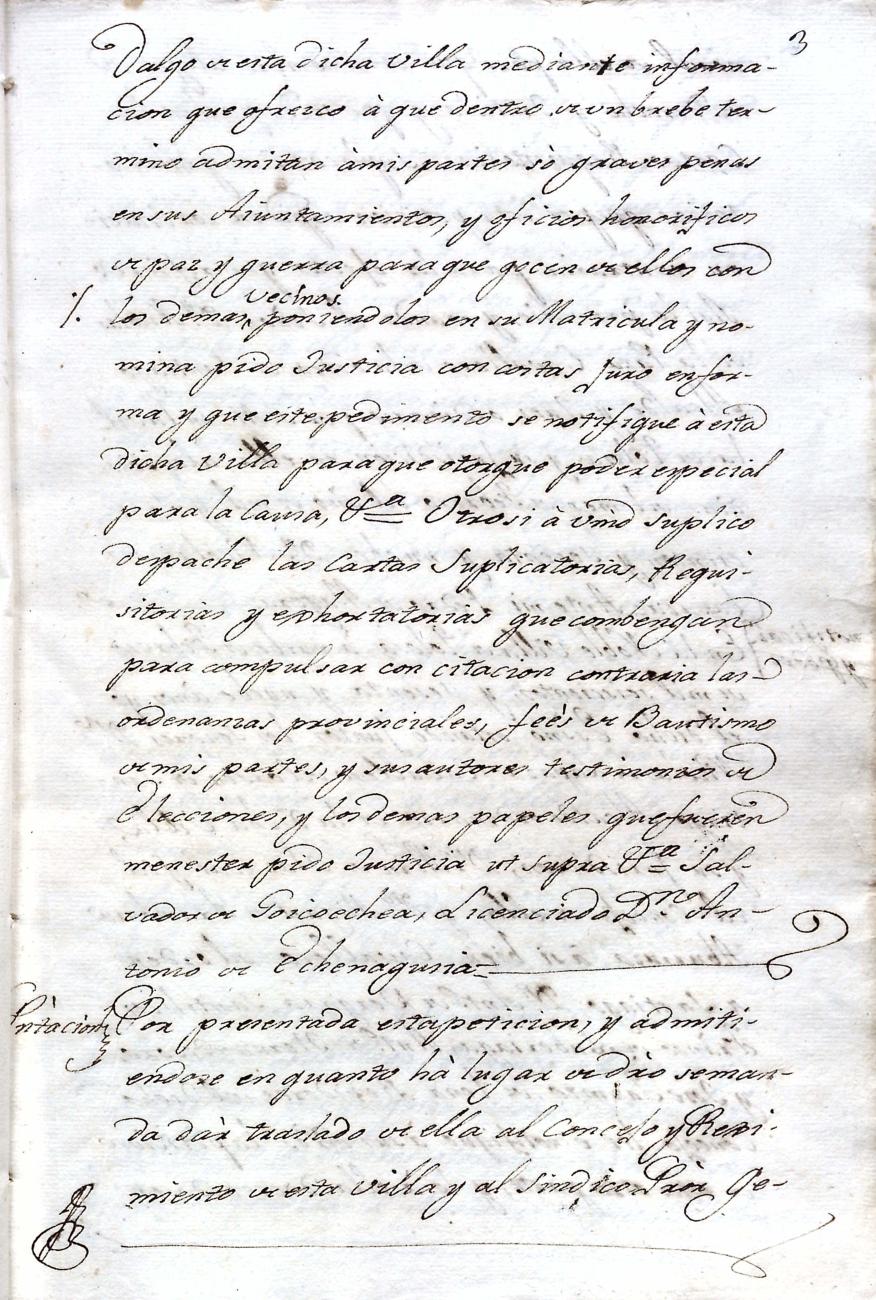 3
Dalgo de esta dicha Villa mediante informa-
cion que ofrezco à que dentro de un brebe ter-
mino admitan à mis partes sò graves penas
en sus Aiuntamientos, y oficios honorificos
de paz y guerra para que gocen de ellos con
vecinos.
./. los demas, poniendolos en su Matricula y no-
mina pido Justicia con costas Juro en for-
ma y que este pedimento se notifique à esta
dicha Villa para que otorgue poder especial
para la Causa, &a = Otrosi à vmd suplico
despache las Cartas Suplicatorias, Requi-
sitorias y exhortatorias que combengan
para compulsar con citacion contraria las
ordenanzas provinciales, feès de Bautismo
de mis partes, y sus autores testimonios de
Elecciones, y los demas papeles que fueren
menester pido Justicia ut supra &a = Sal-
vador de Goicoechea, Licenciado Dn. An-
tonio de Echenagusia =
Pntàcion Por presentada esta peticion, y admiti-
endose en quanto hà lugar de dro se man-
da dàr traslado de ella al Concejo y Rexi-
miento de esta Villa y al Sindico Pròr Ge-